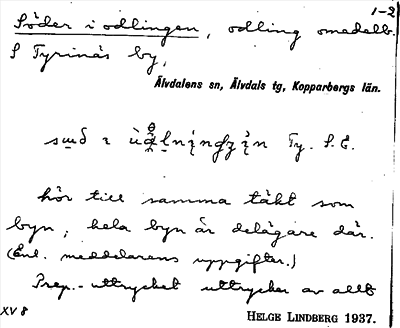 1-2
Söder i odlingen, odling omedelb.
S Tyrinäs by,
Älvdalens sn, Älvdals tg, Kopparbergs län.
Ty. S. E.
hör till samma täkt som
byn; hela byn är delägare där.
(Enl. meddelarens uppgifter.)
Prep.-uttrycket uttrycker av allt
XV 8
HELGE LINDBERG 1937.